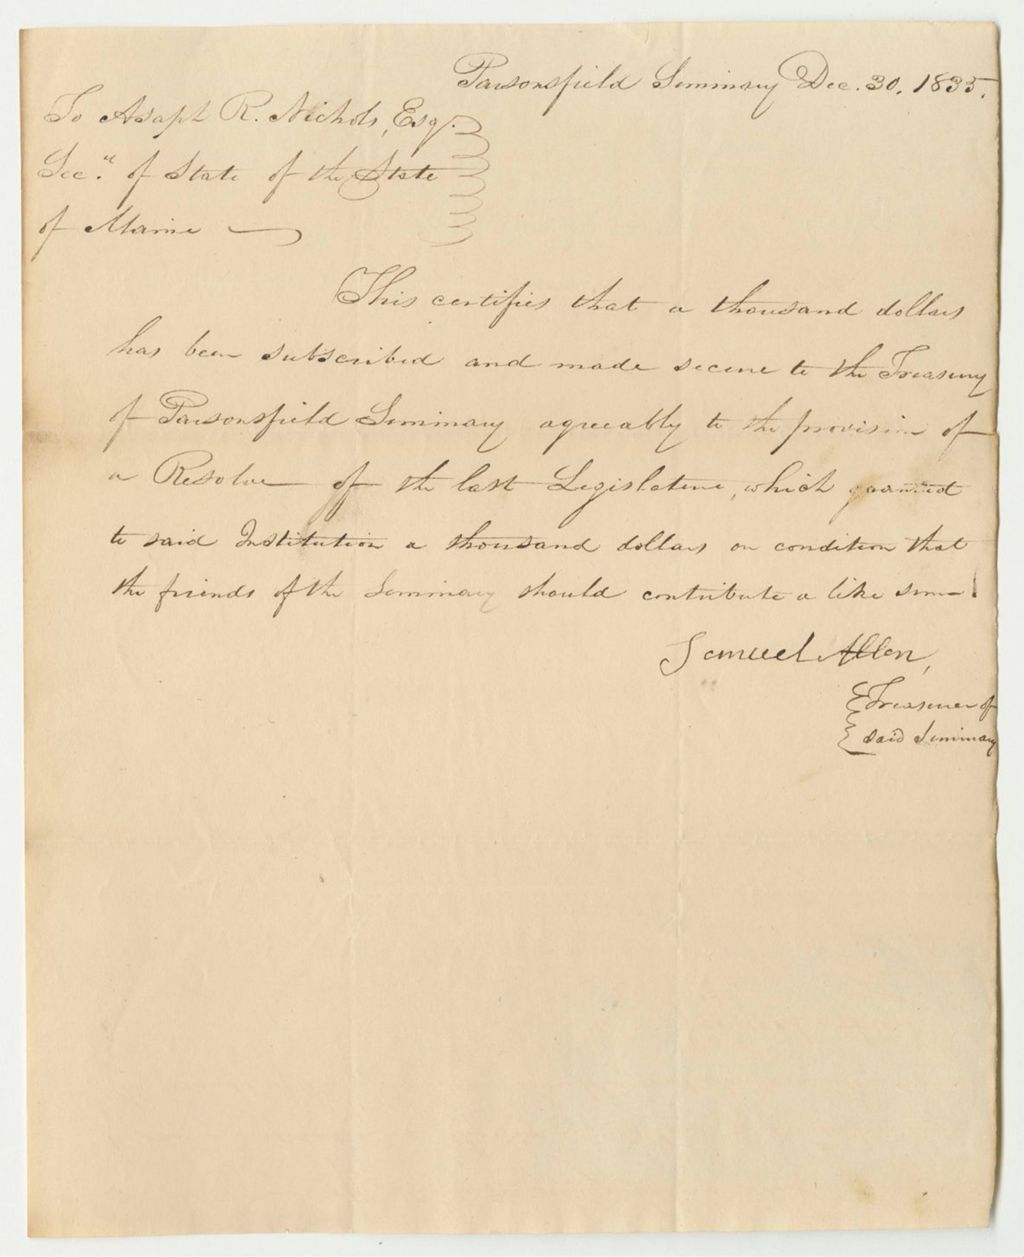 Parsonsfield Seminary Dec. 30. 1835.
To Asaph R. Nichols, Esq.
Sec. of State of the State
of Maine
This certifies that a thousand dollars
has been subscribed and made secure to the Treasury
of Parsonsfield Seminary agreeably to the provision of
a Resolve of the last Legislature, which granted
to said Institution a thousand dollars on condition that
the friends of the Seminary should contribute a like sum
Samuel Allen,
Treasurer of
said Seminary